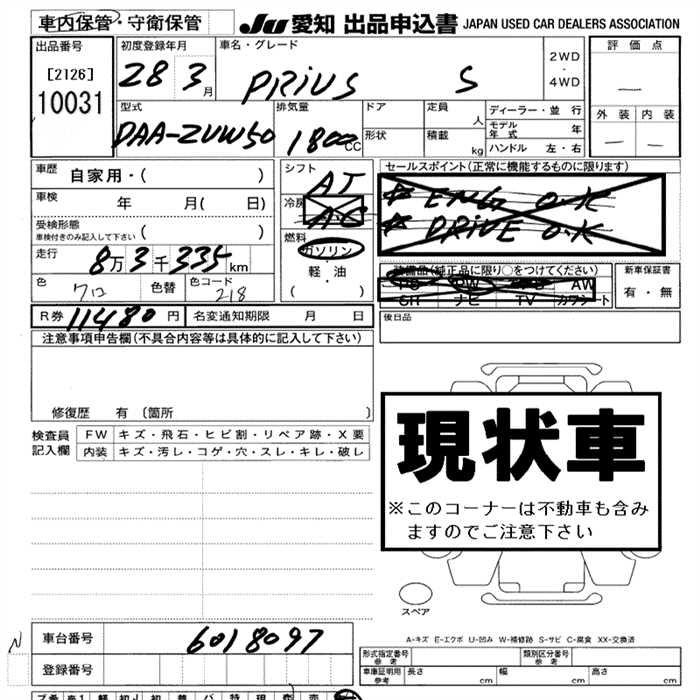 車内保管・守衛保管 JU 愛知 出品申込書 JAPAN USED CAR DEALERS ASSOCIATION
出品番号 初度登録年月 車名・グレード 2WD・4WD 評価点
[2126] 28 3月 PRIUS S
10031
外装 内装
型式 排気量 ドア 定員 人 ディーラー・並行
DAA-ZVW50 1800cc 形状 積載 kg モデル年式 年
ハンドル 左・右
車歴 自家用・( ) シフト AT セールスポイント(正常に機能するものに限ります)
車検 年 月( 日) 冷房 AC ☆ ENG O.K
受検形態 ( ) ☆ DRIVE O.K
車検付きのみ記入して下さい
燃料 ガソリン・軽・油 ( )
走行 8万3千335km
装備品(純正品に限り○をつけてください) 新車保証書
PS PW AW 有・無
SH ナビ TV カワシート
色 クロ 色替 色コード 218
後日品
R券 11480円 名変通知期限 月 日
注意事項申告欄(不具合内容等は具体的に記入して下さい)
修復歴 有〔箇所 〕
検査員記入欄 FW キズ・飛石・ヒビ割・リペア跡・X要
内装 キズ・汚レ・コゲ・穴・スレ・キレ・破レ
現状車
※このコーナーは不動車も含み
ますのでご注意下さい
スペア
A-キズ E-エクボ U-凹み W-補修跡 S-サビ C-腐食 XX-交換済
N 車台番号 6018097
形式指定番号 参考 類別区分番号 参考
登録番号
車庫証明用 参考 長さ 幅 高さ